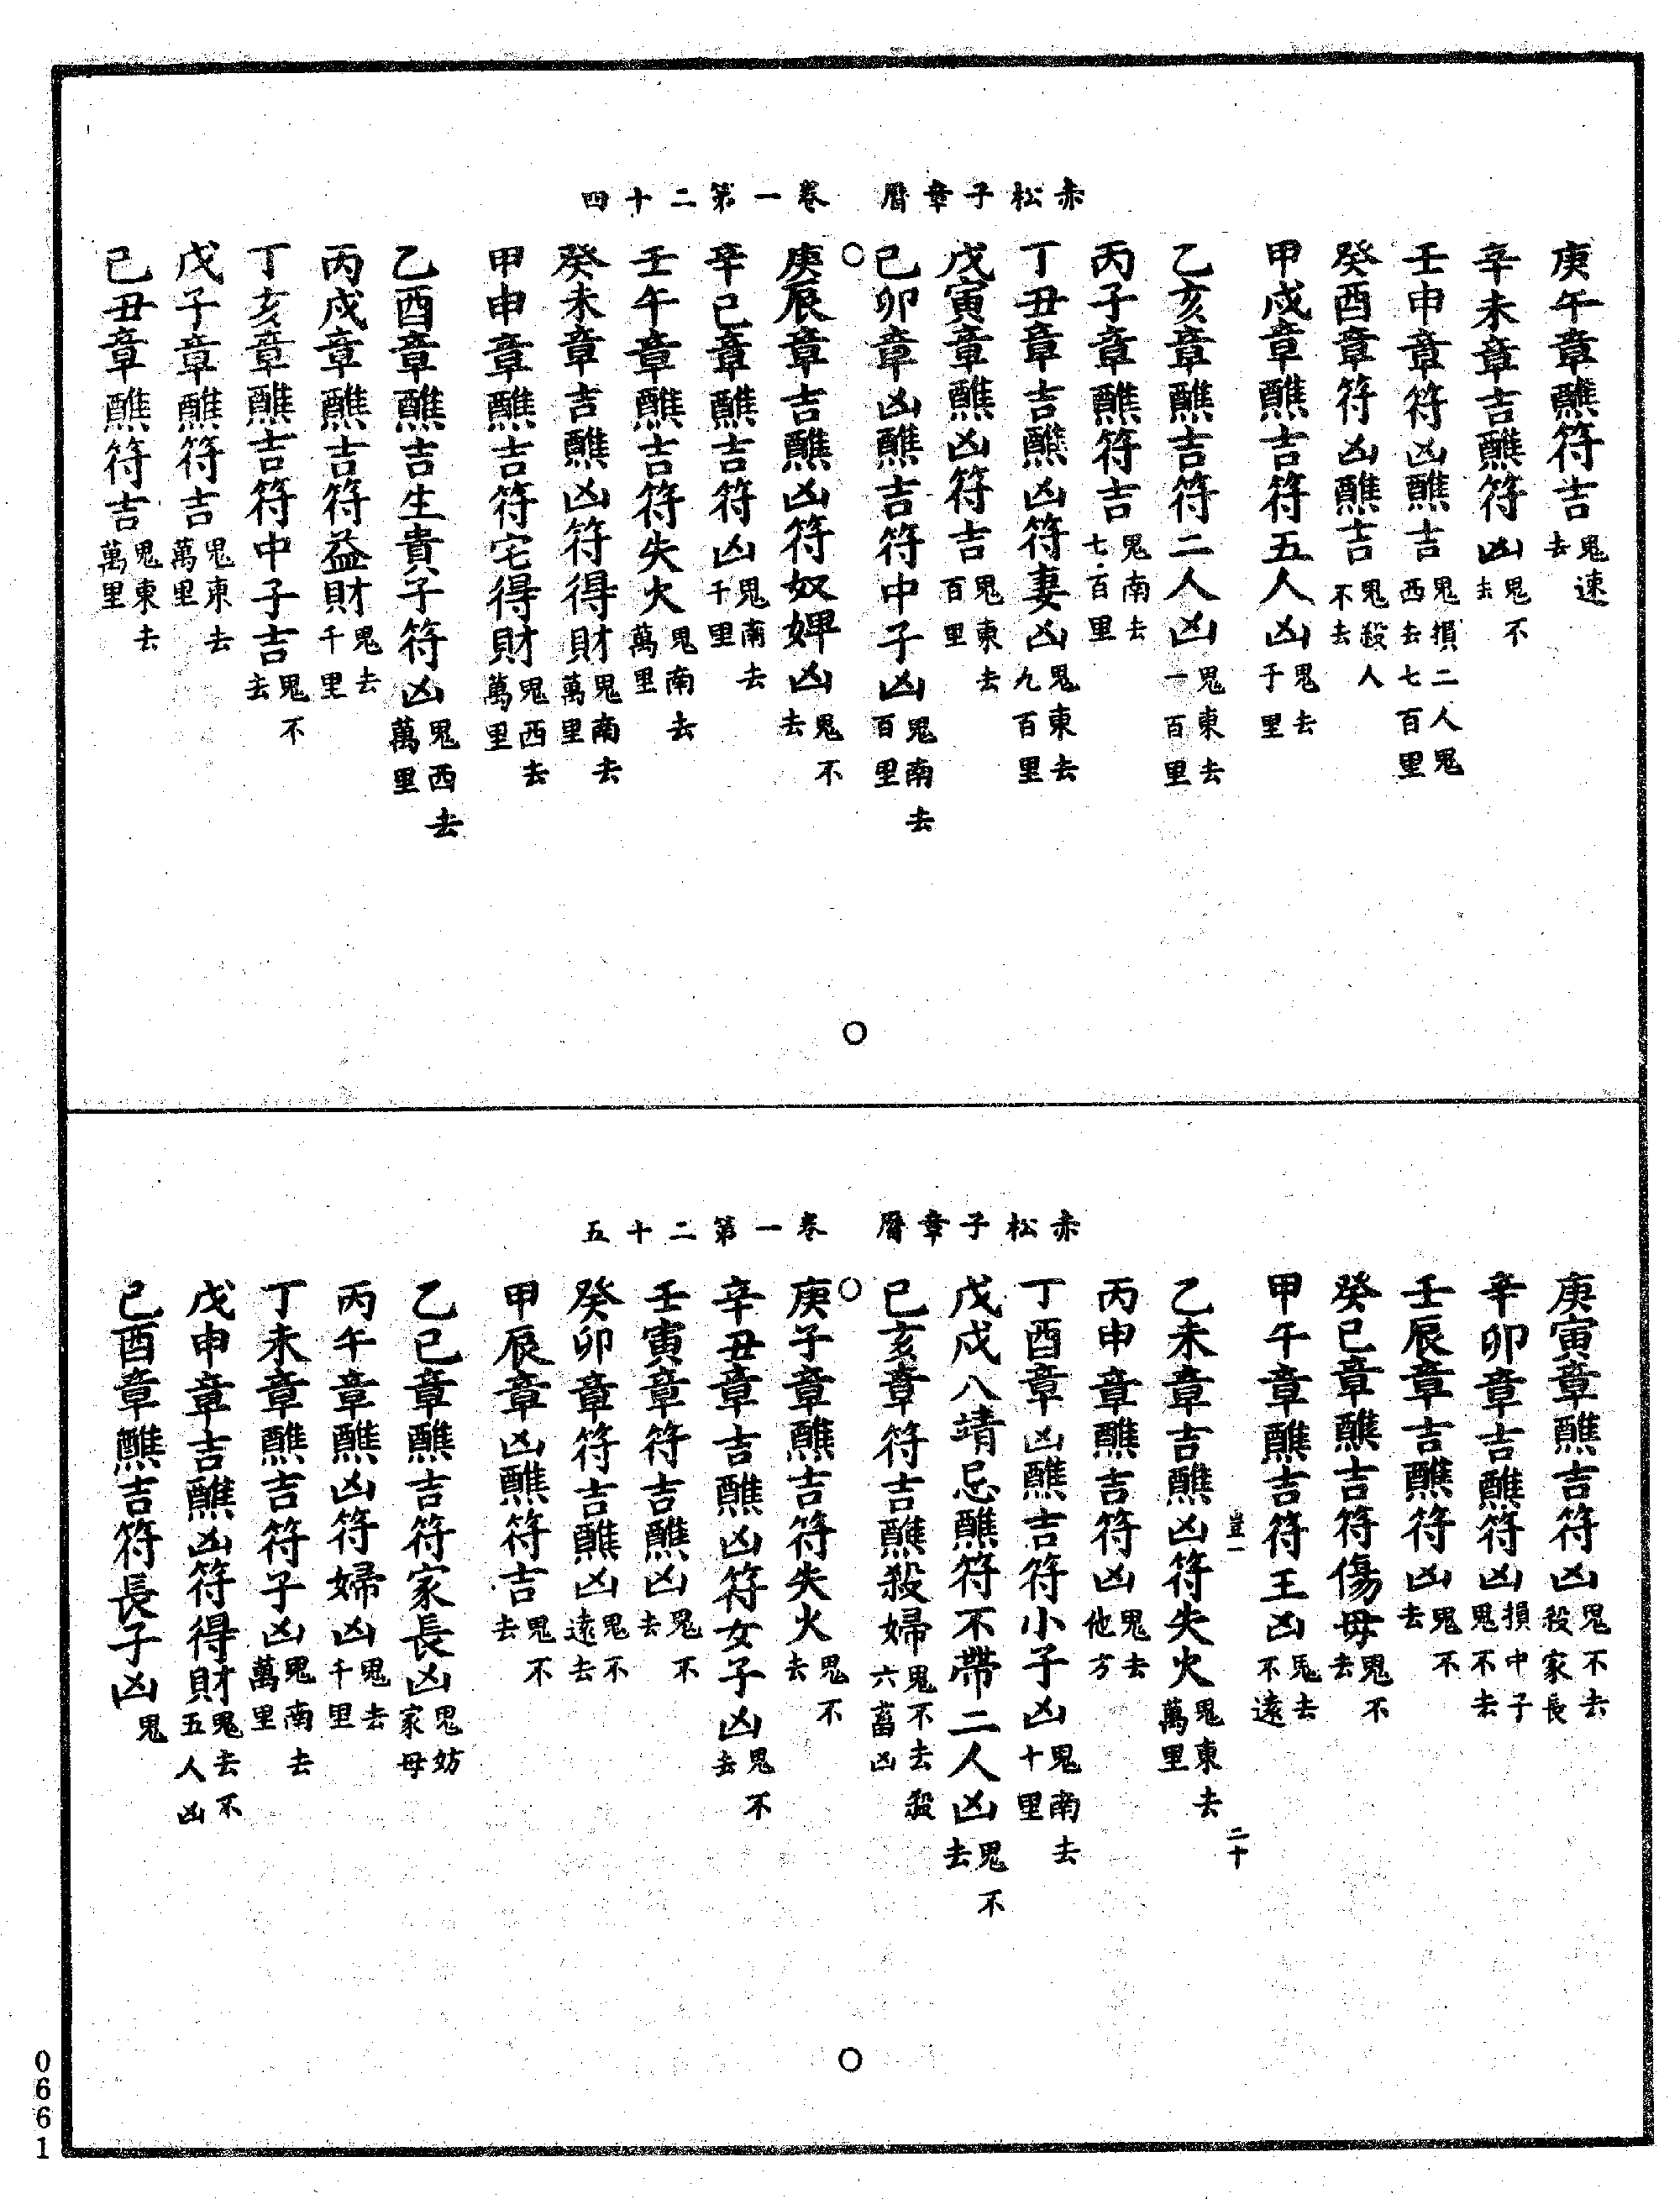 赤松子章曆　卷一第二十四
庚午章醮符吉鬼速去
辛未章吉醮符凶鬼不去
壬申章符凶醮吉鬼損二人鬼西去七百里
癸酉章符凶醮吉鬼殺人不去
甲戌章醮吉符五人凶鬼去千里
乙亥章醮吉符二人凶鬼東去一百里
丙子章醮符吉鬼南去七百里
丁丑章吉醮凶符妻凶鬼東去九百里
戊寅章醮凶符吉鬼東去百里
己卯章凶醮吉符中子凶鬼南去百里
○
庚辰章吉醮凶符奴婢凶鬼不去
辛巳章醮吉符凶鬼南去千里
壬午章醮吉符失火鬼南去萬里
癸未章吉醮凶符得財鬼南去萬里
甲申章醮吉符宅得財鬼西去萬里
乙酉章醮吉生貴子符凶鬼西去萬里
丙戌章醮吉符益財鬼去千里
丁亥章醮吉符中子吉鬼不去
戊子章醮符吉鬼東去萬里
己丑章醮符吉鬼東去萬里
○
赤松子章曆　卷一第二十五
庚寅章醮吉符凶鬼不去殺家長
辛卯章吉醮符凶損中子鬼不去
壬辰章吉醮符凶鬼不去
癸巳章醮吉符傷母鬼不去
甲午章醮吉符王凶鬼去不遠
豈一　二十
乙未章吉醮凶符失火鬼東去萬里
丙申章醮吉符凶鬼去他方
丁酉章凶醮吉符小子凶鬼南去十里
戊戌八靖忌醮符不帶二人凶鬼不去
己亥章符吉醮殺婦鬼不去殺六畜凶
○
庚子章醮吉符失火鬼不去
辛丑章吉醮凶符女子凶鬼不去
壬寅章符吉醮凶鬼不去
癸卯章符吉醮凶鬼不遠去
甲辰章凶醮符吉鬼不去
乙巳章醮吉符家長凶鬼妨家母
丙午章醮凶符婦凶鬼去千里
丁未章醮吉符子凶鬼南去萬里
戊申章吉醮凶符得財鬼去不五人凶
己酉章醮吉符長子凶鬼
○
0661